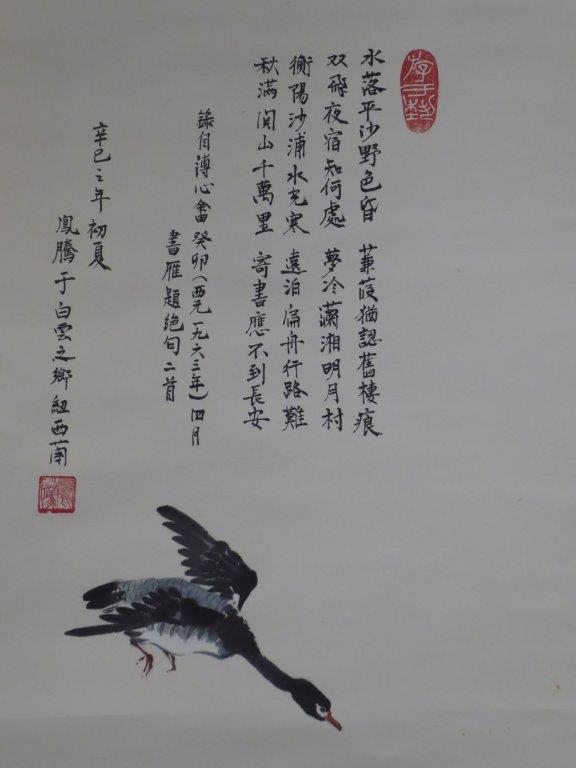 水落平沙野色昏 蒹葭猶認舊棲痕
双飛夜宿知何處 夢冷瀟湘明月村
衡陽沙浦水光寒 遠泊扁舟行路難
秋滿関山千萬里 寄書應不到長安
錄自溥心畬癸卯(西元一九六三年)四月
書雁題絕句二首
辛巳之年初夏
鳳騰于白雲之鄉紐西蘭